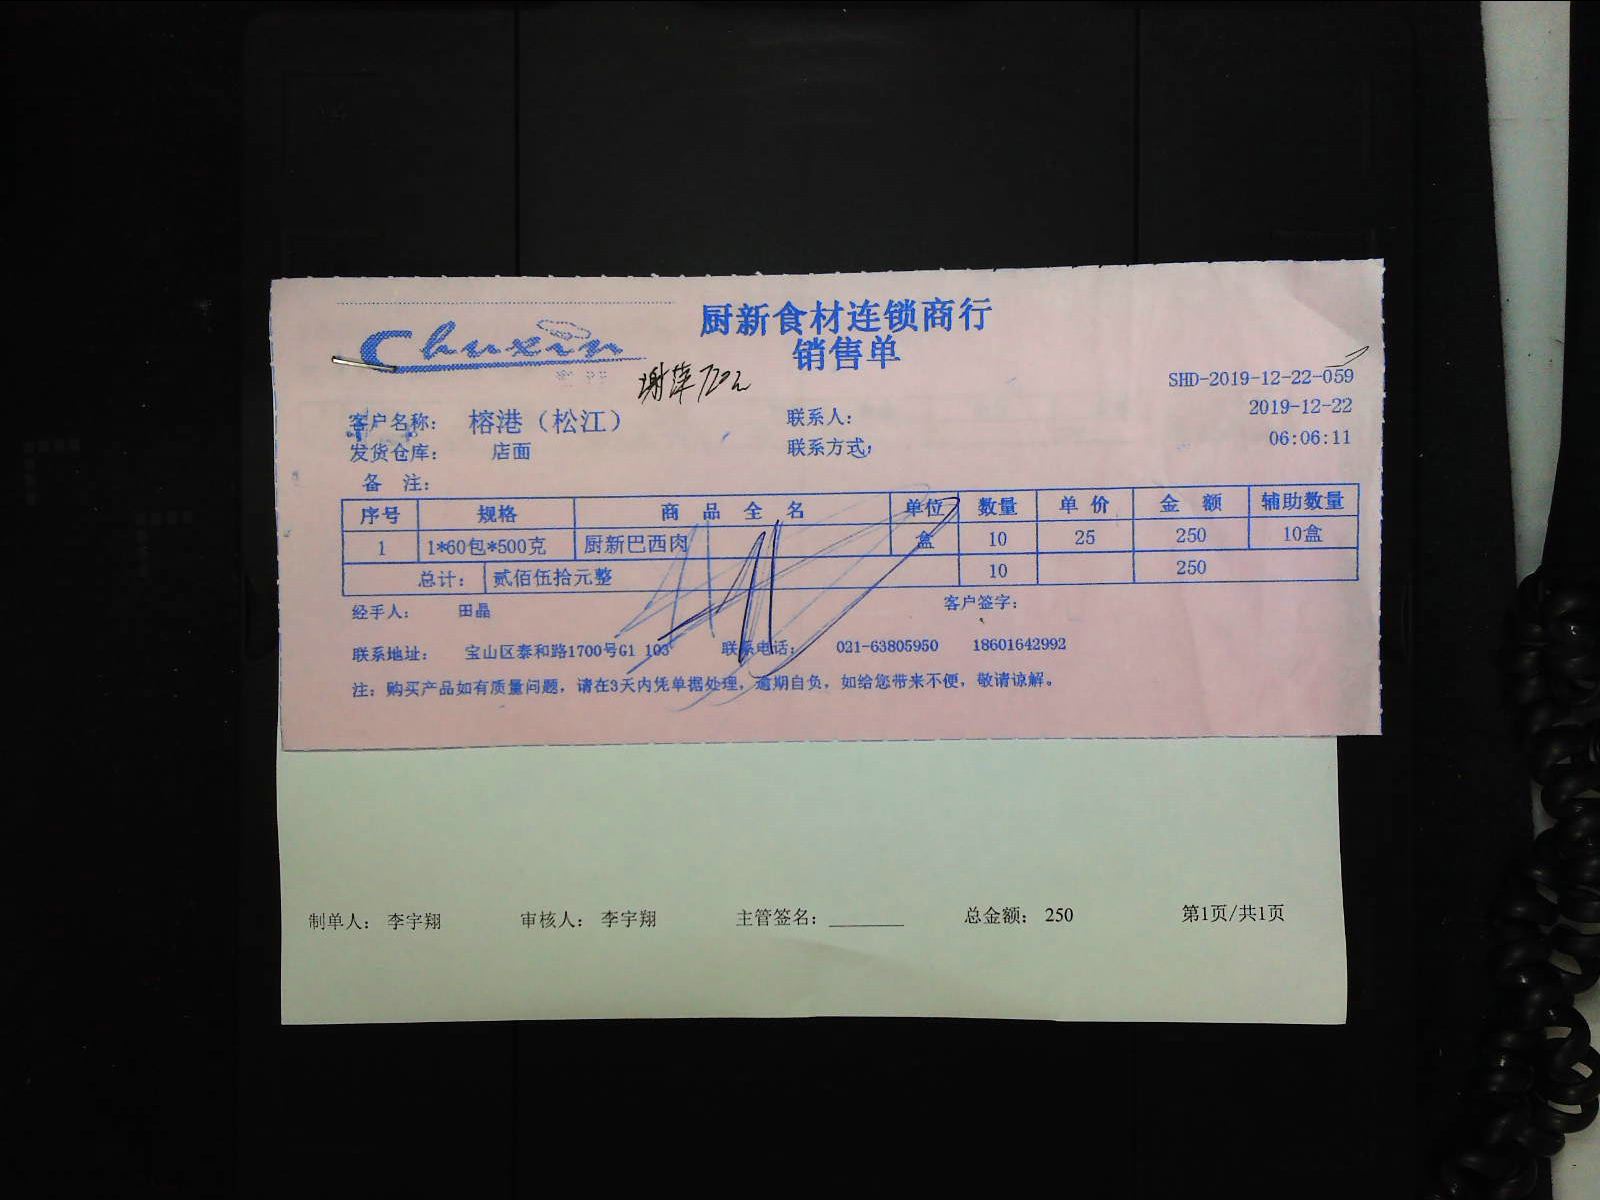 厨新食材连锁商行
Chuxin
销售单
SHD-2019-12-22-059
客户名称： 榕港（松江） 联系人： 2019-12-22
发货仓库： 店面 联系方式： 06:06:11
备 注：
序号 规格 商 品 全 名 单位 数量 单 价 金 额 辅助数量
1 1*60包*500克 厨新巴西肉 盒 10 25 250 10盒
总计： 贰佰伍拾元整 10 250
经手人： 田晶 客户签字：
联系地址： 宝山区泰和路1700号G1 103 联系电话： 021-63805950 18601642992
注：购买产品如有质量问题，请在3天内凭单据处理，逾期自负，如给您带来不便，敬请谅解。
制单人： 李宇翔 审核人： 李宇翔 主管签名：________ 总金额： 250 第1页/共1页